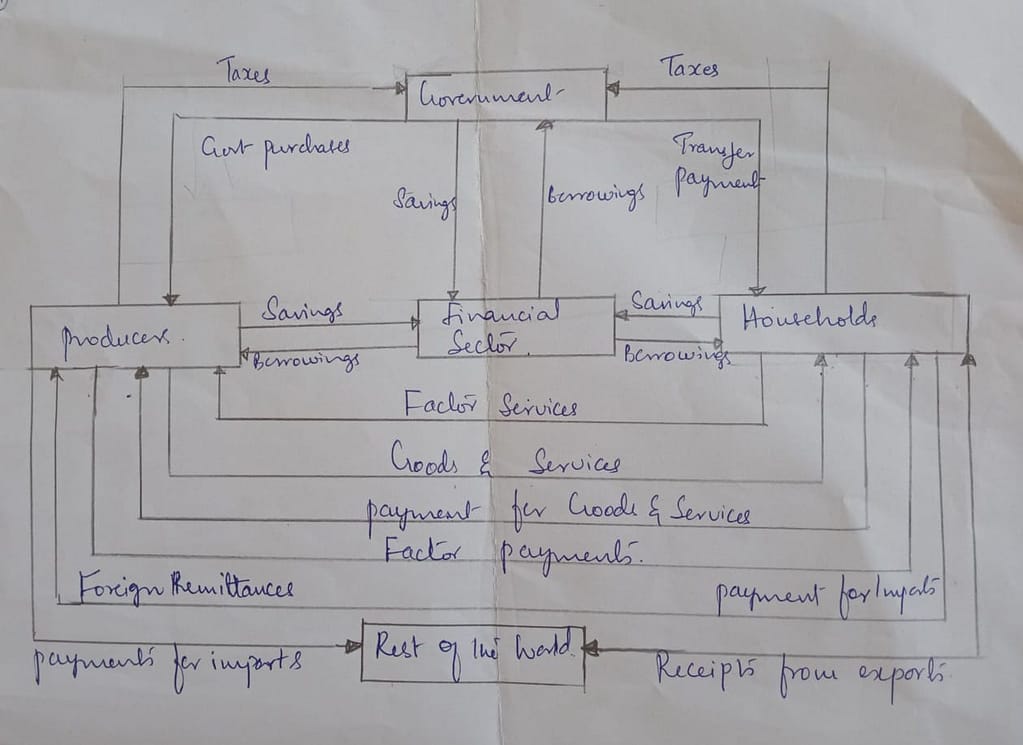 Taxes
Taxes
Government
Govt purchases
Transfer
payment
Savings
Borrowings
Savings
Savings
Producers.
Financial
Sector.
Households
Borrowings
Borrowings
Factor Services
Goods & Services
payment for Goods & Services
Factor payments.
Foreign Remittances
payment for Imports
Rest of the World.
payments for imports
Receipts from exports.